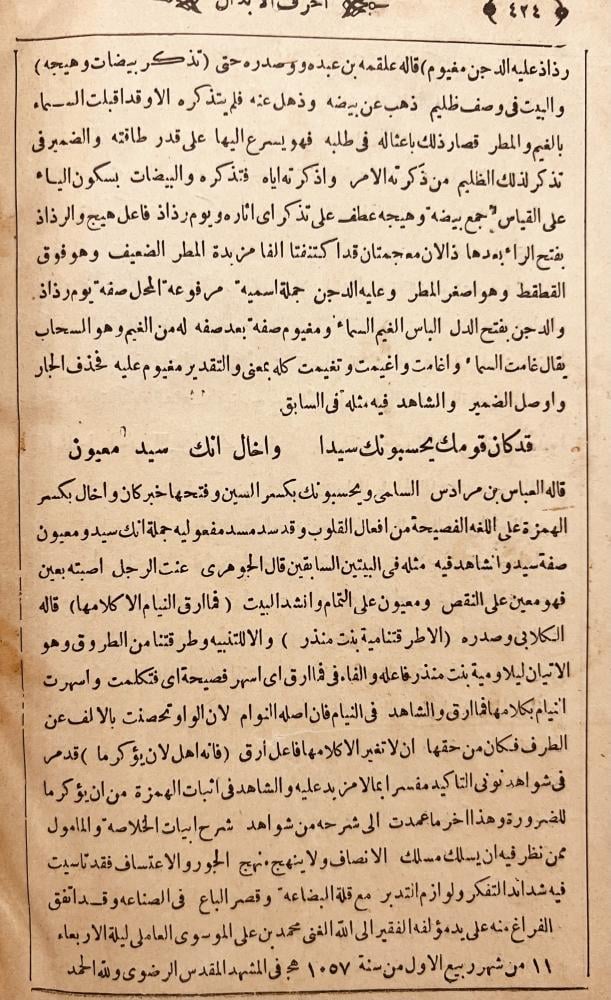 ﴿ ٤٢٤ ﴾
رذاذ عليه الدجن مغيوم) قاله علقمه بن عبده ووصدره حتى (تذكر بيضات وهيجه)
والبيت فى وصف ظليم ذهب عن بيضه وذهل عنه فلم يتذكره الا وقد اقبلت السماء
بالغيم والمطر فصار ذلك باعثا له فى طلبه فهو يسرع اليها على قدر طاقته والضمير فى
تذكر لذلك الظليم من ذكرته الامر واذكرته اياه فتذكره والبيضات بسكون الياء
على القياس جمع بيضة وهيجه عطف على تذكر اى اثاره ويوم رذاذ فاعل هيج والرذاذ
بفتح الراء بعدها ذالان معجمتان قد اكتنفتا الفا مزيدة المطر الضعيف وهو فوق
القطقط وهو اصغر المطر وعليه الدجن جملة اسمية مرفوعة المحل صفة يوم رذاذ
والدجن بفتح الدل الباس الغيم السماء ومغيوم صفة بعد صفه له من الغيم وهو السحاب
يقال غامت السماء واغامت واغيمت وتغيمت كله بمعنى والتقدير مغيوم عليه فحذف الجار
واوصل الضمير والشاهد فيه مثله فى السابق
قد كان قومك يحسبونك سيدا واخال انك سيد معيون
قاله العباس بن مرادس السلمى ويحسبونك بكسر السين وفتحها خبر كان واخال بكسر
الهمزة على اللغه الفصيحة من افعال القلوب وقد سد مسد مفعوليه جملة انك سيد ومعيون
صفة سيد وانشاهد فيه مثله فى البيتين السابقين قال الجوهرى عنت الرجل اصبته بعين
فهو معين على النقص ومعيون على التمام وانشد البيت (فما ارق النيام الا كلامها) قاله
الكلابى وصدره (الا طرقتنا مية بنت منذر) والا للتنبيه وطرقتنا من الطروق وهو
الاتيان ليلا ومية بنت منذر فاعله والفاء فى فما ارق اى اسهر فصيحة اى فتكلمت واسهرت
انيام بكلامها فما ارق والشاهد فى النيام فان اصله النوام لان الواو تحصنت بالالف عن
الطرف فكان من حقها ان لا تغير الا كلامها فاعل أرق (فانه اهل لان يؤكرما) قد مر
فى شواهد نونى التاكيد مفسرا بما لا مزيد عليه والشاهد فى اثبات الهمزة من ان يؤكرما
للضرورة وهذا اخر ما عمدت الى شرحه من شواهد شرح ابيات الخلاصة والمامول
ممن نظر فيه ان يسلك مسلك الانصاف ولا ينهج منهج الجور والاعتساف فقد قاسيت
فيه شدائد التفكر ولوازم التدبر مع قلة البضاعة وقصر الباع فى الصناعه وقد اتفق
الفراغ منه على يد مؤلفه الفقير الى الله الغنى محمد بن على الموسوى العاملى ليلة الاربعاء
١١ من شهر ربيع الاول من سنة ١٠٥٧ هج فى المشهد المقدس الرضوى ولله الحمد